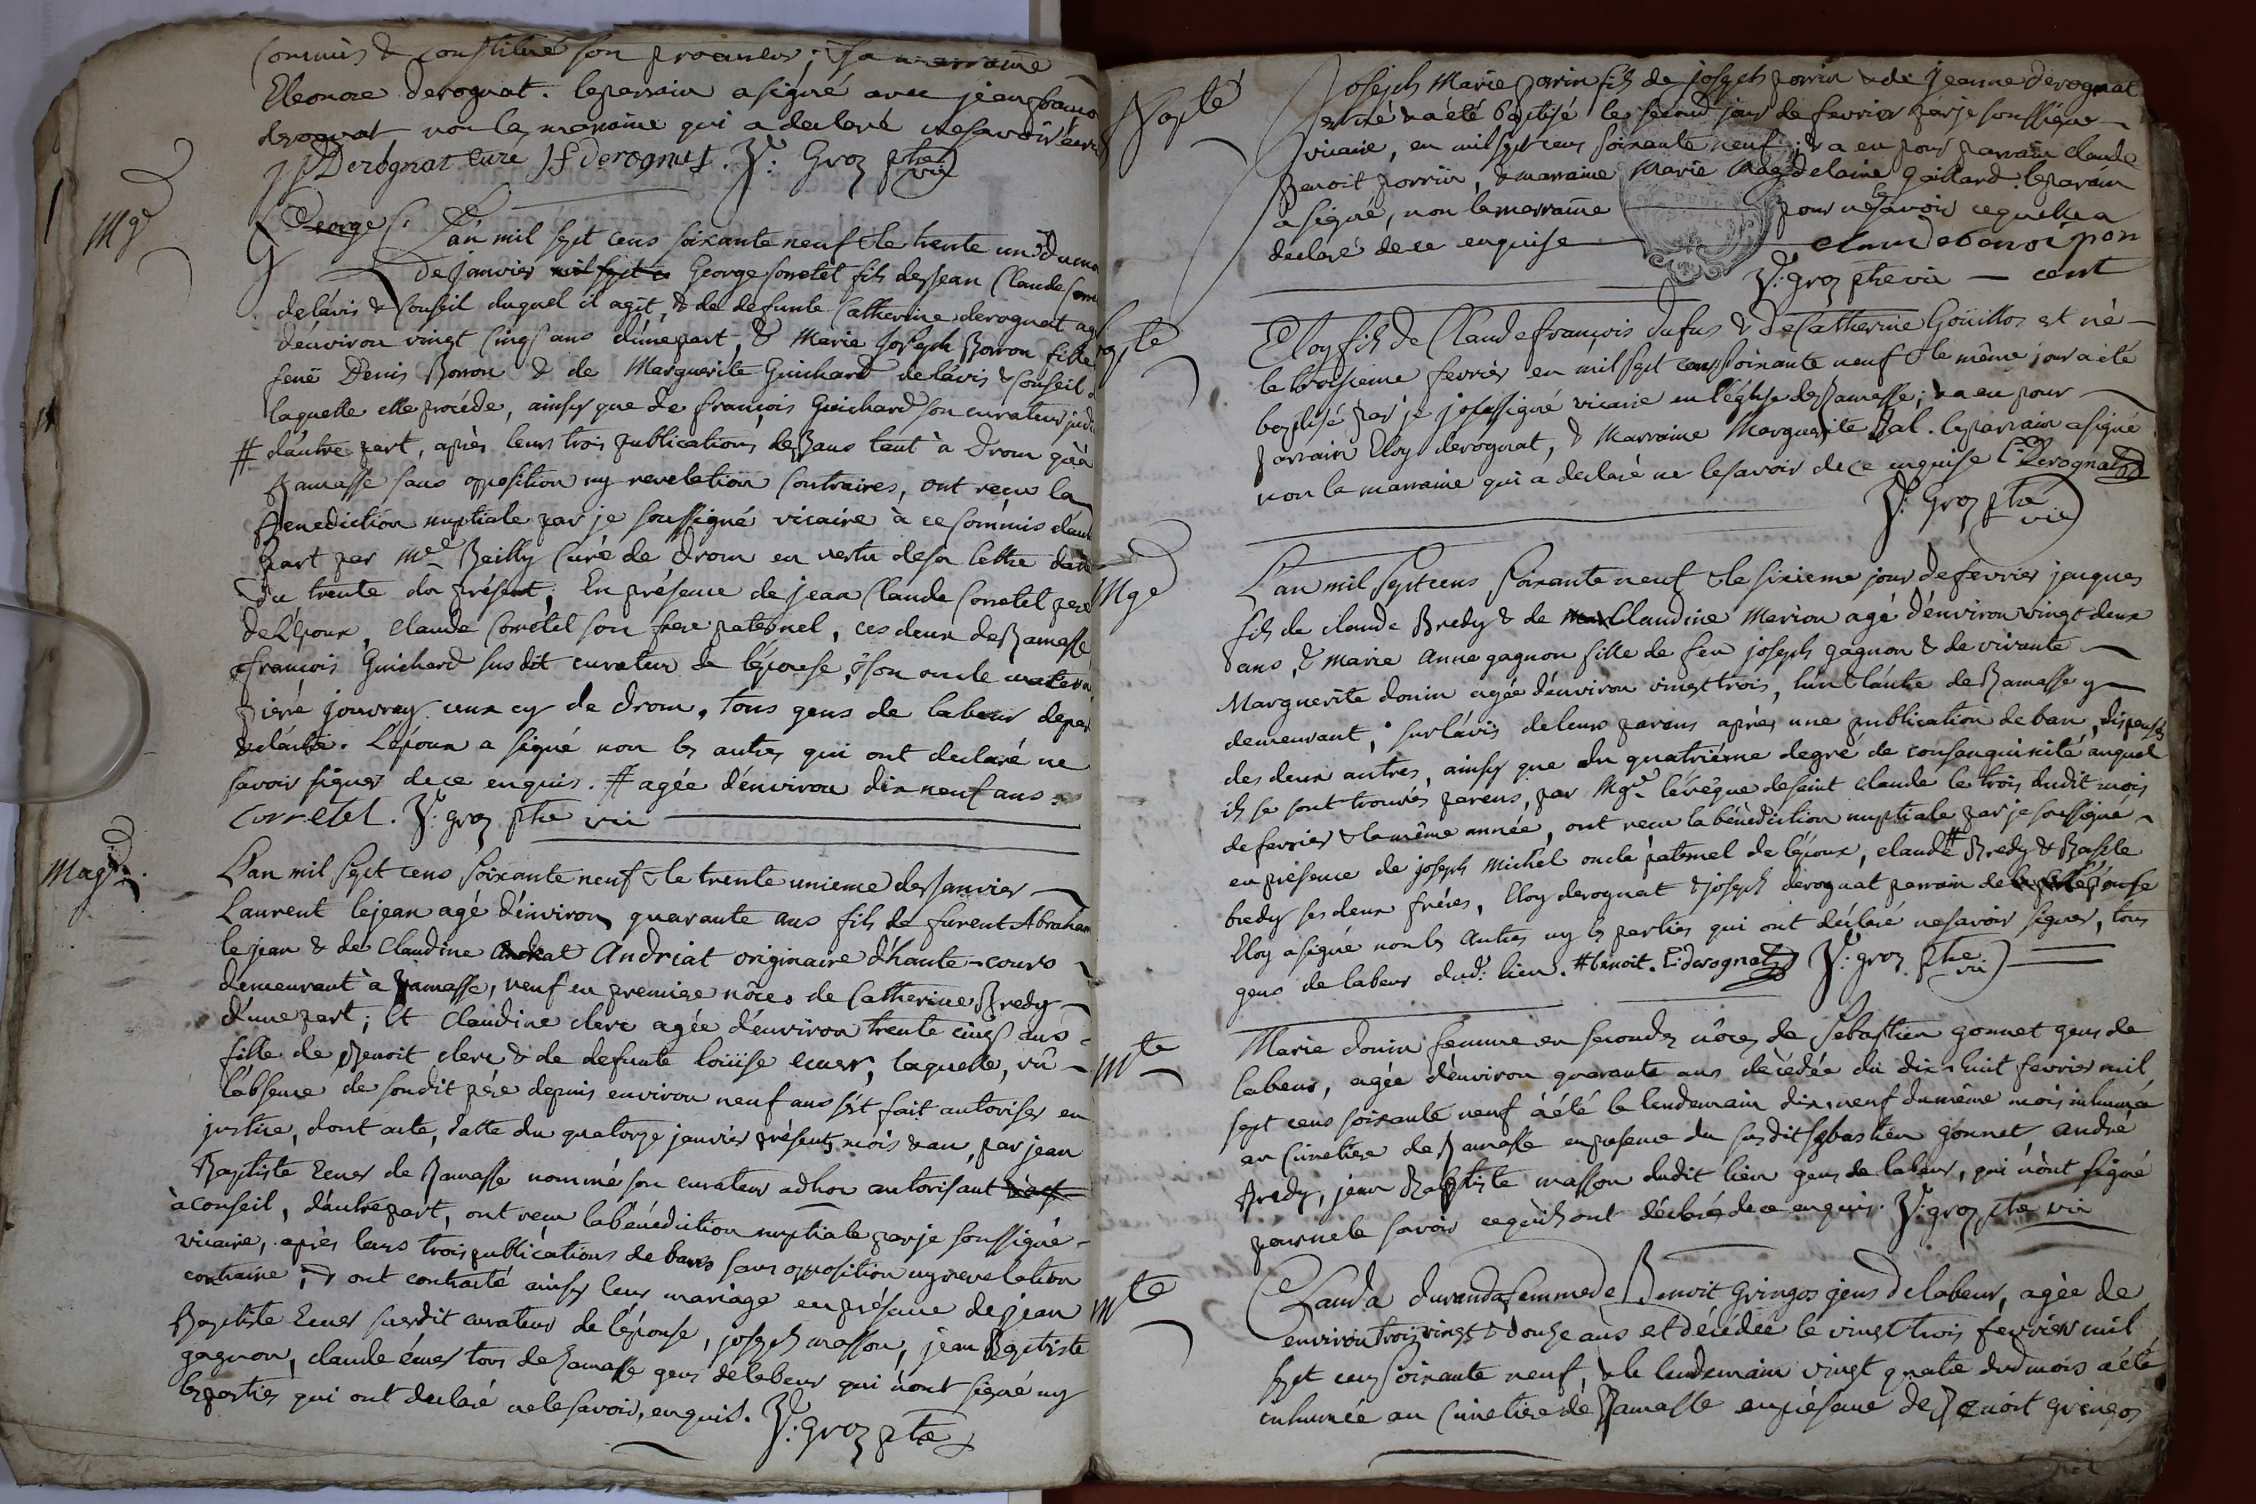 commis & constitué son procureur ; & sa marraine
Eleonore derognat . le parrain a signé avec jean francois
derognat non la marraine qui a declaré ne savoir écrire
Derognat curé J f derognat . P: Groz ptre vic
Mge
George C. L'an mil sept cens soixante neuf & le trente un du mois
de janvier mil sept ce George Corretel fils de Jean Claude Corre
de l'avis & Conseil duquel il agit, & de defunte Catherine derognat agé
d'environ vingt cinq ans d'une part & Marie joseph Borron fille
feu Denis Borron & de Marguerite Guichard de l'avis & Conseil de
laquelle elle procéde, ainsy que de françois Guichard son curateur judi
# d'autre part, après leurs trois publications de Bans tant à Drom qu'à
Ramasse sans opposition ny revelation Contraires, ont reçu la
Benediction nuptiale par je soussigné vicaire à ce commis d'autre
part par Mre Reilly Curé de Drom en vertu de sa lettre datée
du trente du présent, En présence de jean Claude Corretel pere
de L'époux, Claude Corretel son frere paternel, ces deux de Ramasse
françois Guichard susdit curateur de l'épouse, & son oncle maternel
pierre jouvray ceux cy de Drom, tous gens de labeur de part
& d'autre. L'époux a signé non les autres qui ont declaré ne
savoir signer de ce enquis. # agée d'environ dix neuf ans.
Corretel . P: groz ptre vic
Mage.
L'an mil sept cens soixante neuf & le trente unieme de Janvier
Laurent lejean agé d'environ quarante ans fils de furent Abraham
le jean & de Claudine Andriat originaire d'haute-cours
demeurant à Ramasse, veuf en premiere nôces de Catherine Bredy
d'une part ; Et Claudine clerc agée d'environ trente cinq ans
fille de Benoit clerc & de defunte Loüise Emer, laquelle, vû
l'absence de sondit pére depuis environ neuf ans s'est fait autoriser en
justice, dont acte, datte du quatorze janvier présents mois & an, par jean
Baptiste Emer de Ramasse nommé son curateur adhoc autorisant
à conseil, d'autre part, ont reçu la bénédiction nuptiale par je soussigné
vicaire, après leurs trois publications de bans sans opposition ny revelation
contraire ; & ont contracté ainsy leur mariage en présence de jean
Baptiste Emer susdit curateur de l'épouse, joseph masson, jean Baptiste
gagnon, claude émer tous de Ramasse gens de labeur qui n'ont signé ny
les parties qui ont declaré ne le savoir, enquis. P: groz ptre
Bapté
Joseph Marie porrin fils de joseph porrin & de Jeanne Derognat
est né & a été Baptisé le second jour de fevrier par je soussigné
vicaire, en mil sept cens soixante neuf ; & a eu pour parrain claude
Benoit porrin, & marraine Marie Magdelaine Gaillard. le parrain
a signé, non la marraine pour ne le savoir ce qu'elle a
declaré de ce enquise claude benoi pon
P: groz ptre vic — cent
Bapte
Eloy fils de Claude françois dufus & de Catherine Goüillos est né
le troisieme fevrier en mil sept cens soixante neuf & le même jour a été
baptisé par je soussigné vicaire en l'église de Ramasse ; & a eu pour
parrain Eloy derognat, & Marraine Marguerite Bal. le parrain a signé
non la marraine qui a declaré ne le savoir de ce enquise E: Derognat
P: Groz ptre
vic
Mge
L'an mil sept cens soixante neuf & le sixieme jour de fevrier jacques
fils de claude Bredy & de Claudine Merion agé d'environ vingt deux
ans, & marie anne gagnon fille de feu joseph gagnon & de vivante
Marguerite donin agée d'environ vingt trois, l'un & l'autre de Ramasse y
demeurant, sur l'avis de leurs parens après une publication de ban, dispensés
des deux autres, ainsy que du quatriéme degré de consanguinité auquel
ils se sont trouvés parens, par Mgr l'évêque de saint claude le trois dudit mois
de fevrier & la même année, ont reçu la bénédiction nuptiale par je soussigné
en présence de joseph Michel oncle paternel de l'époux, claude # Bredy & Basile
bredy ses deux fréres, Eloy derognat & joseph derognat parrain de l'épouse
Eloy a signé non les Autres ny les parties qui ont déclaré ne savoir signer, tous
gens de labeur dud: lieu. # benoit. E: derognat P: groz ptre
vic
Mte
Marie donin femme en secondes nôces de Sebastien gonnet gens de
labeur, agée d'environ quarante ans décédée du dix-huit fevrier mil
sept cens soixante neuf a été le lendemain dix-neuf du même mois inhumée
au Cimetiere de Ramasse en presence du susdit sebastien gonnet, andré
Bredy, jean Baptiste masson dudit lieu gens de labeur, qui n'ont signé
pour ne le savoir ce qu'ils ont déclarés de ce enquis. P: groz ptre vic
Mte
Clauda durandas femme de Benoit Gringoz gens de labeur, agée de
environ trois vingt & douze ans est décédée le vingt trois fevrier mil
sept cens soixante neuf, & le lendemain vingt quatre dud mois a été
inhumée au Cimetiere de Ramasse en présence de Benoit gringoz